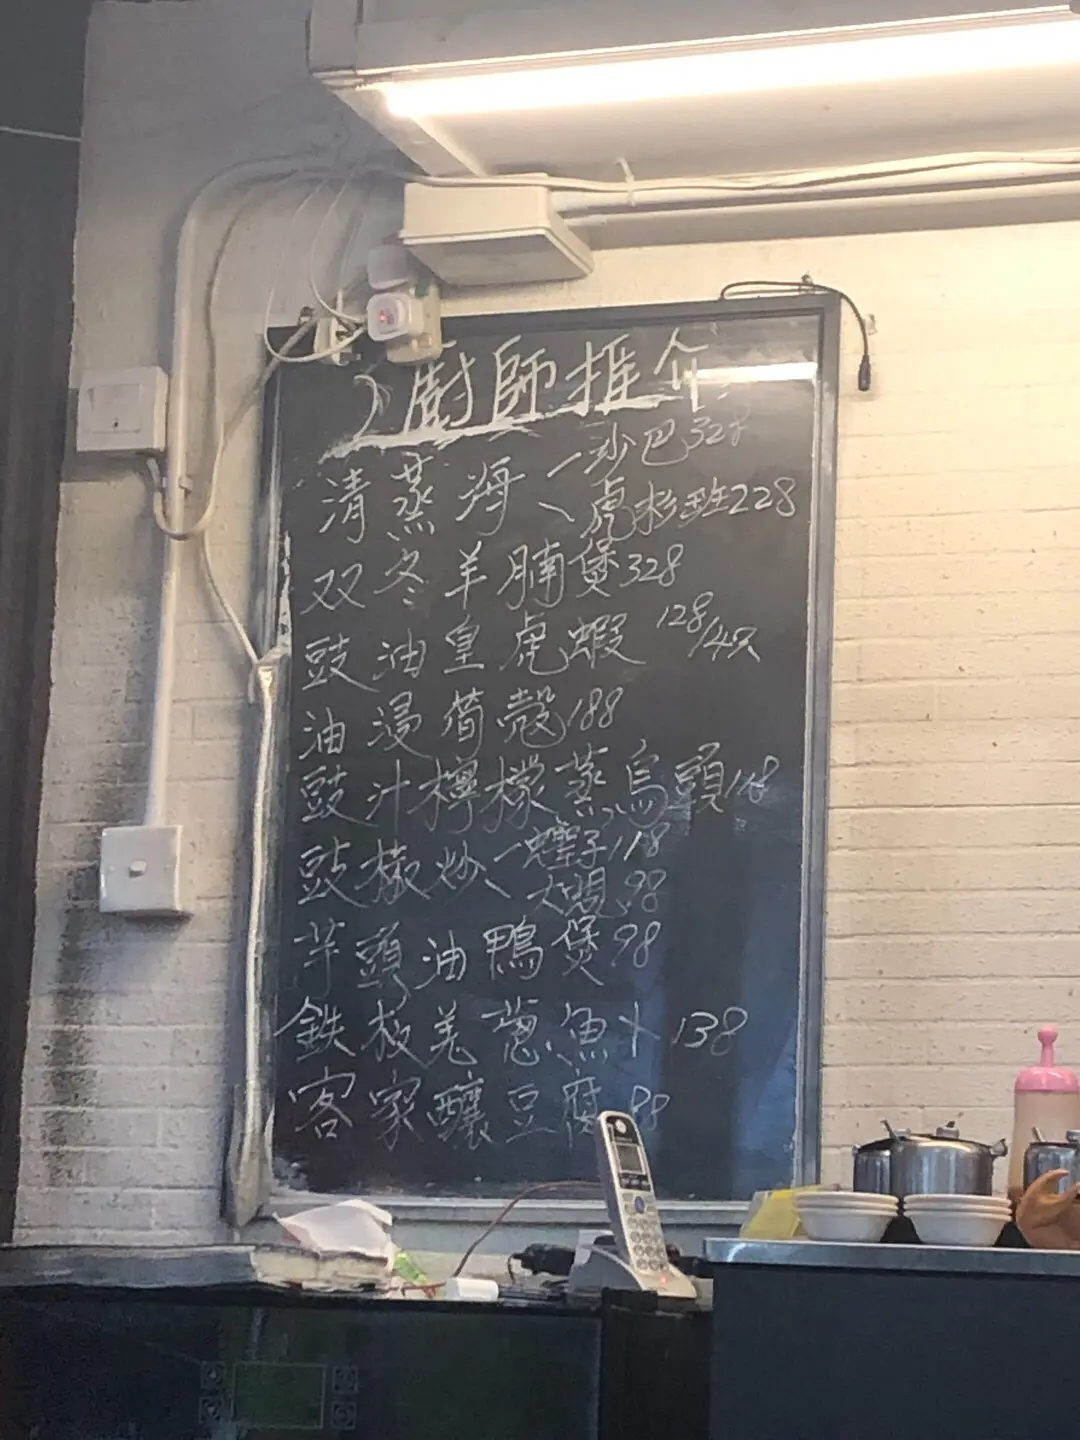 廚師推介
清蒸海 沙巴 328
虎杉班 228
双冬羊腩煲 328
豉油皇虎蝦 128/4只
油浸荀殼 188
豉汁檸檬蒸烏頭
豉椒炒 蟶子 118
大蜆 98
芋頭油鴨煲 98
鉄板羌葱魚卜 138
客家釀豆腐 88